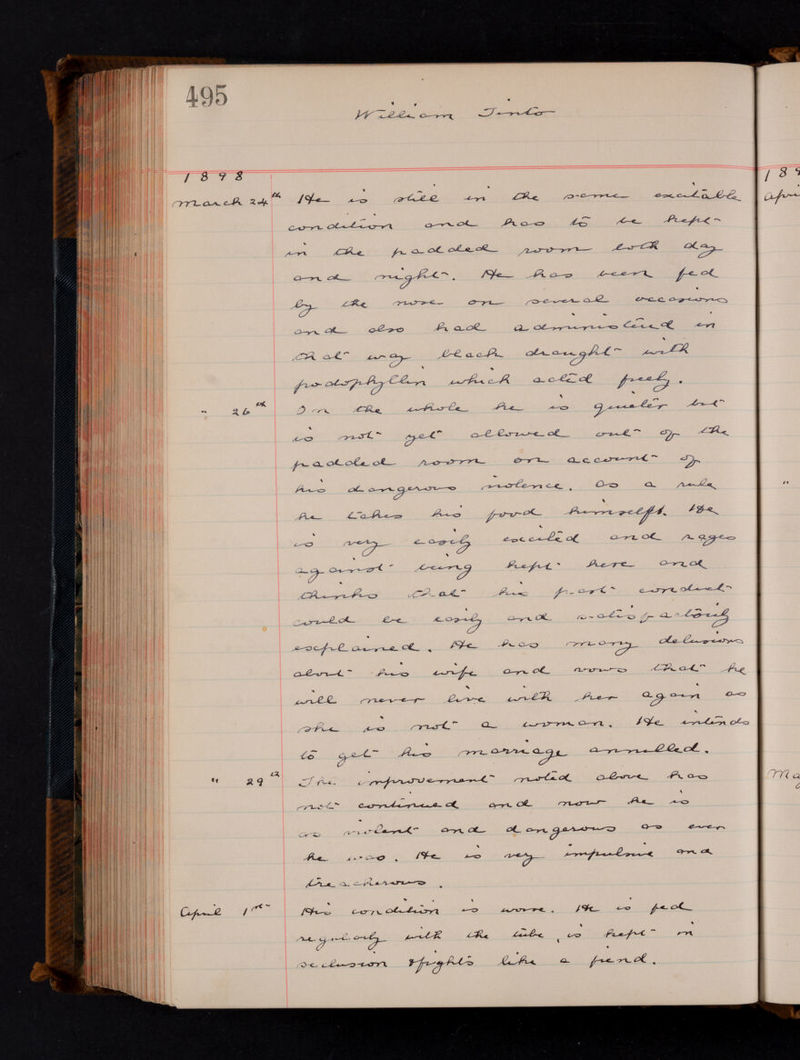 495
William Tinto
1898
March 24th He is still in the same excitable
condition and has to be kept
in the padded room both day
and night. He has been fed
by the nose on several occasions
and also had administered in
that way black draught with
podophyllin which acted freely.
" 26th On the whole he is quieter but
is not yet allowed out of the
padded room on account of
his dangerous violence. As a rule
he takes his food himself. He
is very easily excited and rages
against being kept here and
thinks that his past conduct
could be easily and satisfactorily
explained. He has many delusions
about his wife and vows that he
will never live with her again as
she is not a woman. He intends
to get his marriage annulled.
" 29th The improvement noted above has
not continued and now he is
as violent and dangerous as ever
he was. He is very impulsive and
treacherous.
April 1st His condition is worse. He is fed
regularly with the tube, is kept in
seclusion & fights like a fiend.
189
Apri
"
Ma